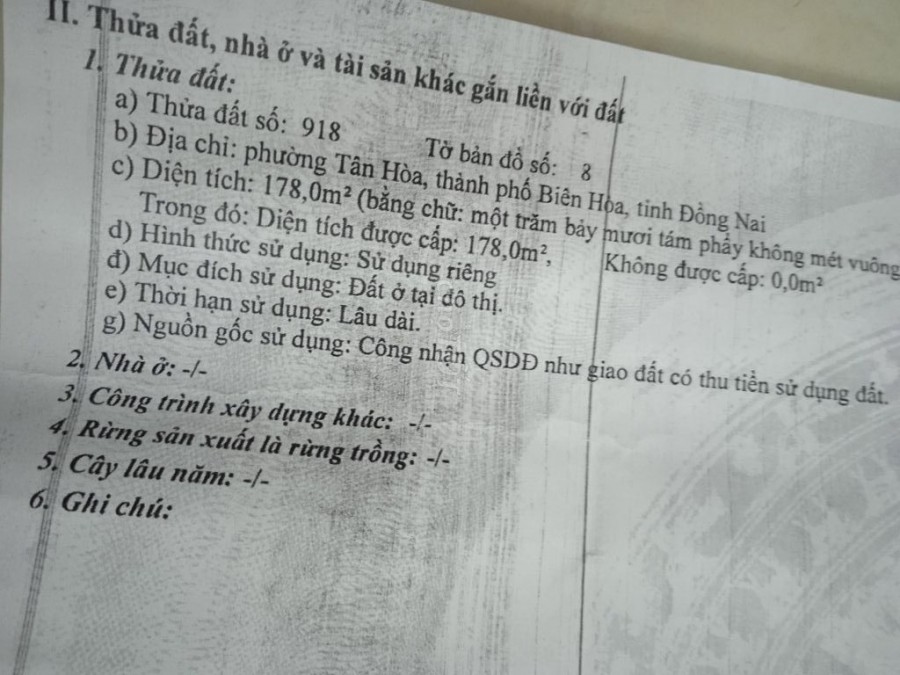 II. Thửa đất, nhà ở và tài sản khác gắn liền với đất
1. Thửa đất:
a) Thửa đất số: 918 Tờ bản đồ số: 8
b) Địa chỉ: phường Tân Hòa, thành phố Biên Hòa, tỉnh Đồng Nai
c) Diện tích: 178,0m² (bằng chữ: một trăm bảy mươi tám phẩy không mét vuông
Trong đó: Diện tích được cấp: 178,0m², Không được cấp: 0,0m²
d) Hình thức sử dụng: Sử dụng riêng
đ) Mục đích sử dụng: Đất ở tại đô thị.
e) Thời hạn sử dụng: Lâu dài.
g) Nguồn gốc sử dụng: Công nhận QSDĐ như giao đất có thu tiền sử dụng đất.
2. Nhà ở: -/-
3. Công trình xây dựng khác: -/-
4. Rừng sản xuất là rừng trồng: -/-
5. Cây lâu năm: -/-
6. Ghi chú: